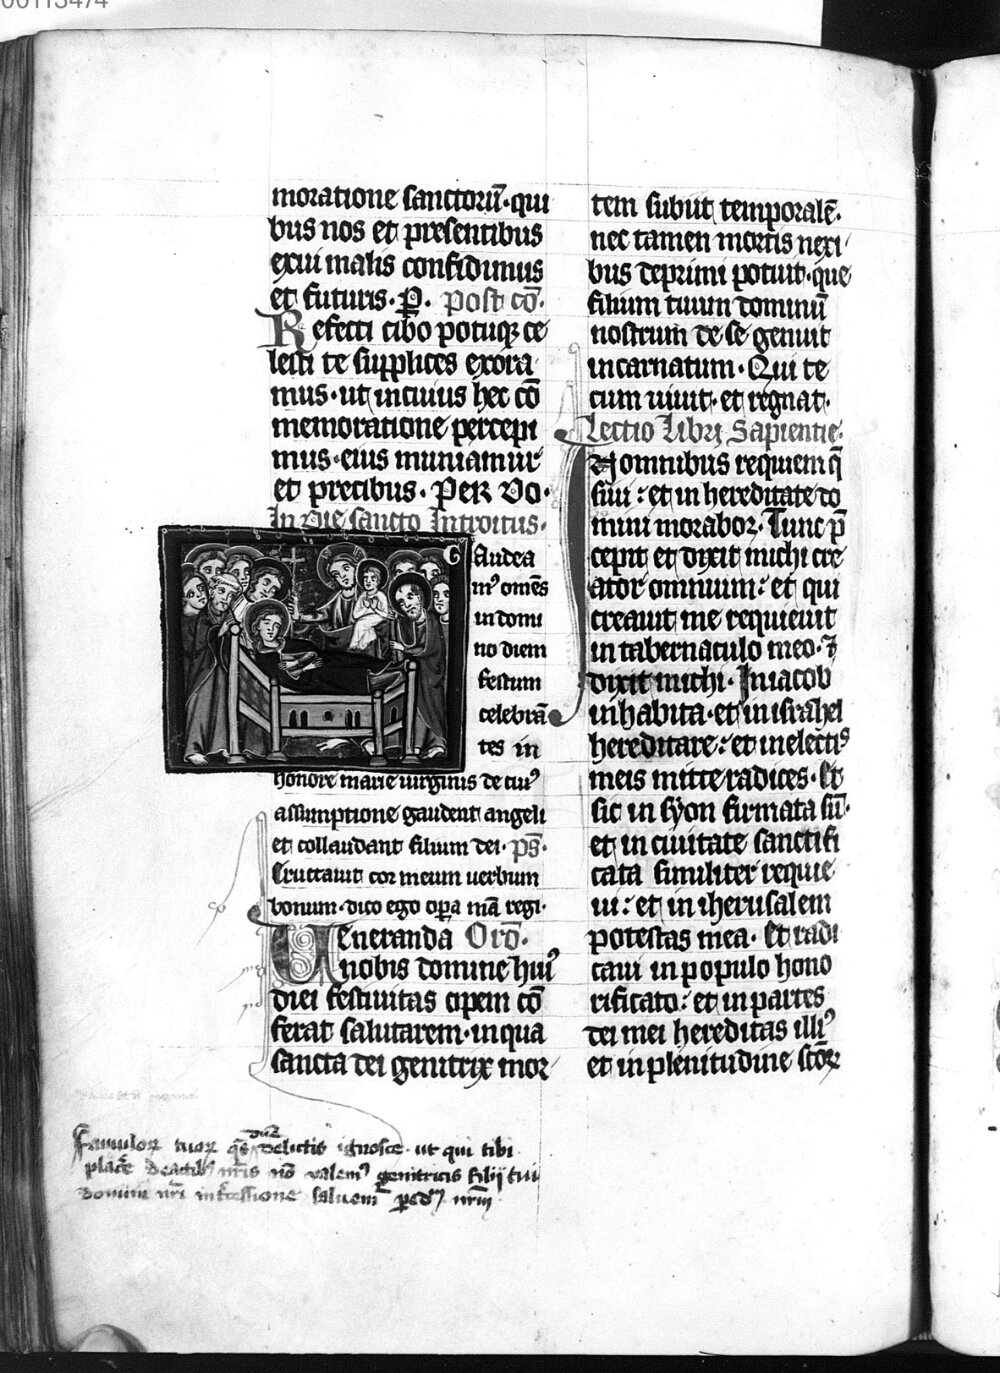 00113474
moratione sanctoru᷑·qui
bus nos et presentibus
exui malis confidimus
et futuris·P̱. Post co᷑·
Refecti cibo potuq; ce
lesti te supplices exora
mus·ut incuius hec co᷑
memoratione percepi
mus·eius muniamur
et precibus·Per Do·
In die sancto Introitus·
Gaudea
mꝰ om̅es
in domi
no diem
festum
celebra᷑
tes in
honore marie uirginis de cuiꝰ
assumptione gaudent angeli
et collaudant filium dei·ps̅·
Eructauit cor meum uerbum
bonum·dico ego oꝑa m̅a regi·
Ueneranda Oro᷑·
nobis domine huiꝰ
diei festiuitas opem co᷑
ferat salutarem·in qua
sancta dei genitrix mor
tem subiit temporale᷑·
nec tamen mortis nexi
bus deprimi potuit·que
filium tuum dominu᷑
nostrum de se genuit
incarnatum·Qui te
cum uiuit·et regnat·
Lectio Libri Sapientie·
In omnibus requiem q̅
siui:et in hereditate do
mini morabor·Tunc p̅
cepit et dixit michi cre
ator omnium:et qui
creauit me requieuit
in tabernaculo meo·⁊
dixit michi·In iacob
inhabita·et in israhel
hereditare:et in electis
meis mitte radices·Et
sic in syon firmata su᷑·
et in ciuitate sanctifi
cata similiter requie
ui:et in iherusalem
potestas mea·Et radi
caui in populo hono
rificato:et in partes
dei mei hereditas illiꝰ
et in plenitudine sc̅oꝝ
famuloꝝ tuoꝝ q̅s dn̅e delictis ignosce·ut qui tibi
place̅ de actibꝰ nr̅is no᷑ valemꝰ genitricis filij tui
domini nr̅i int̅cessione saluem̅